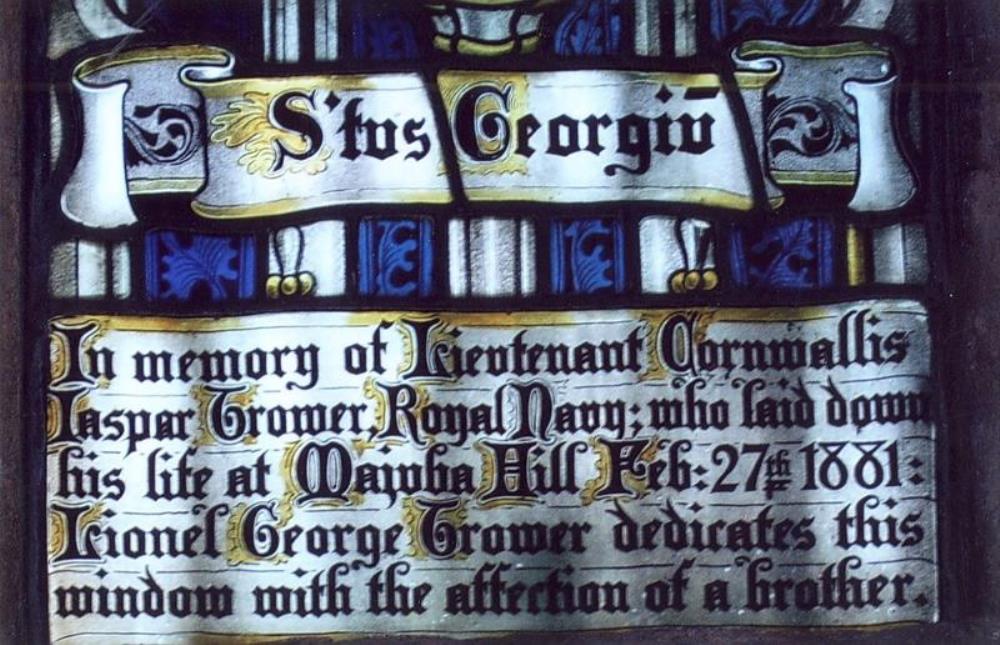 S'tus Georgiū
In memory of Lieutenant Cornwallis
Iaspar Trower, Royal Navy; who laid down
his life at Majuba Hill Feb: 27th 1881:
Lionel George Trower dedicates this
window with the affection of a brother.